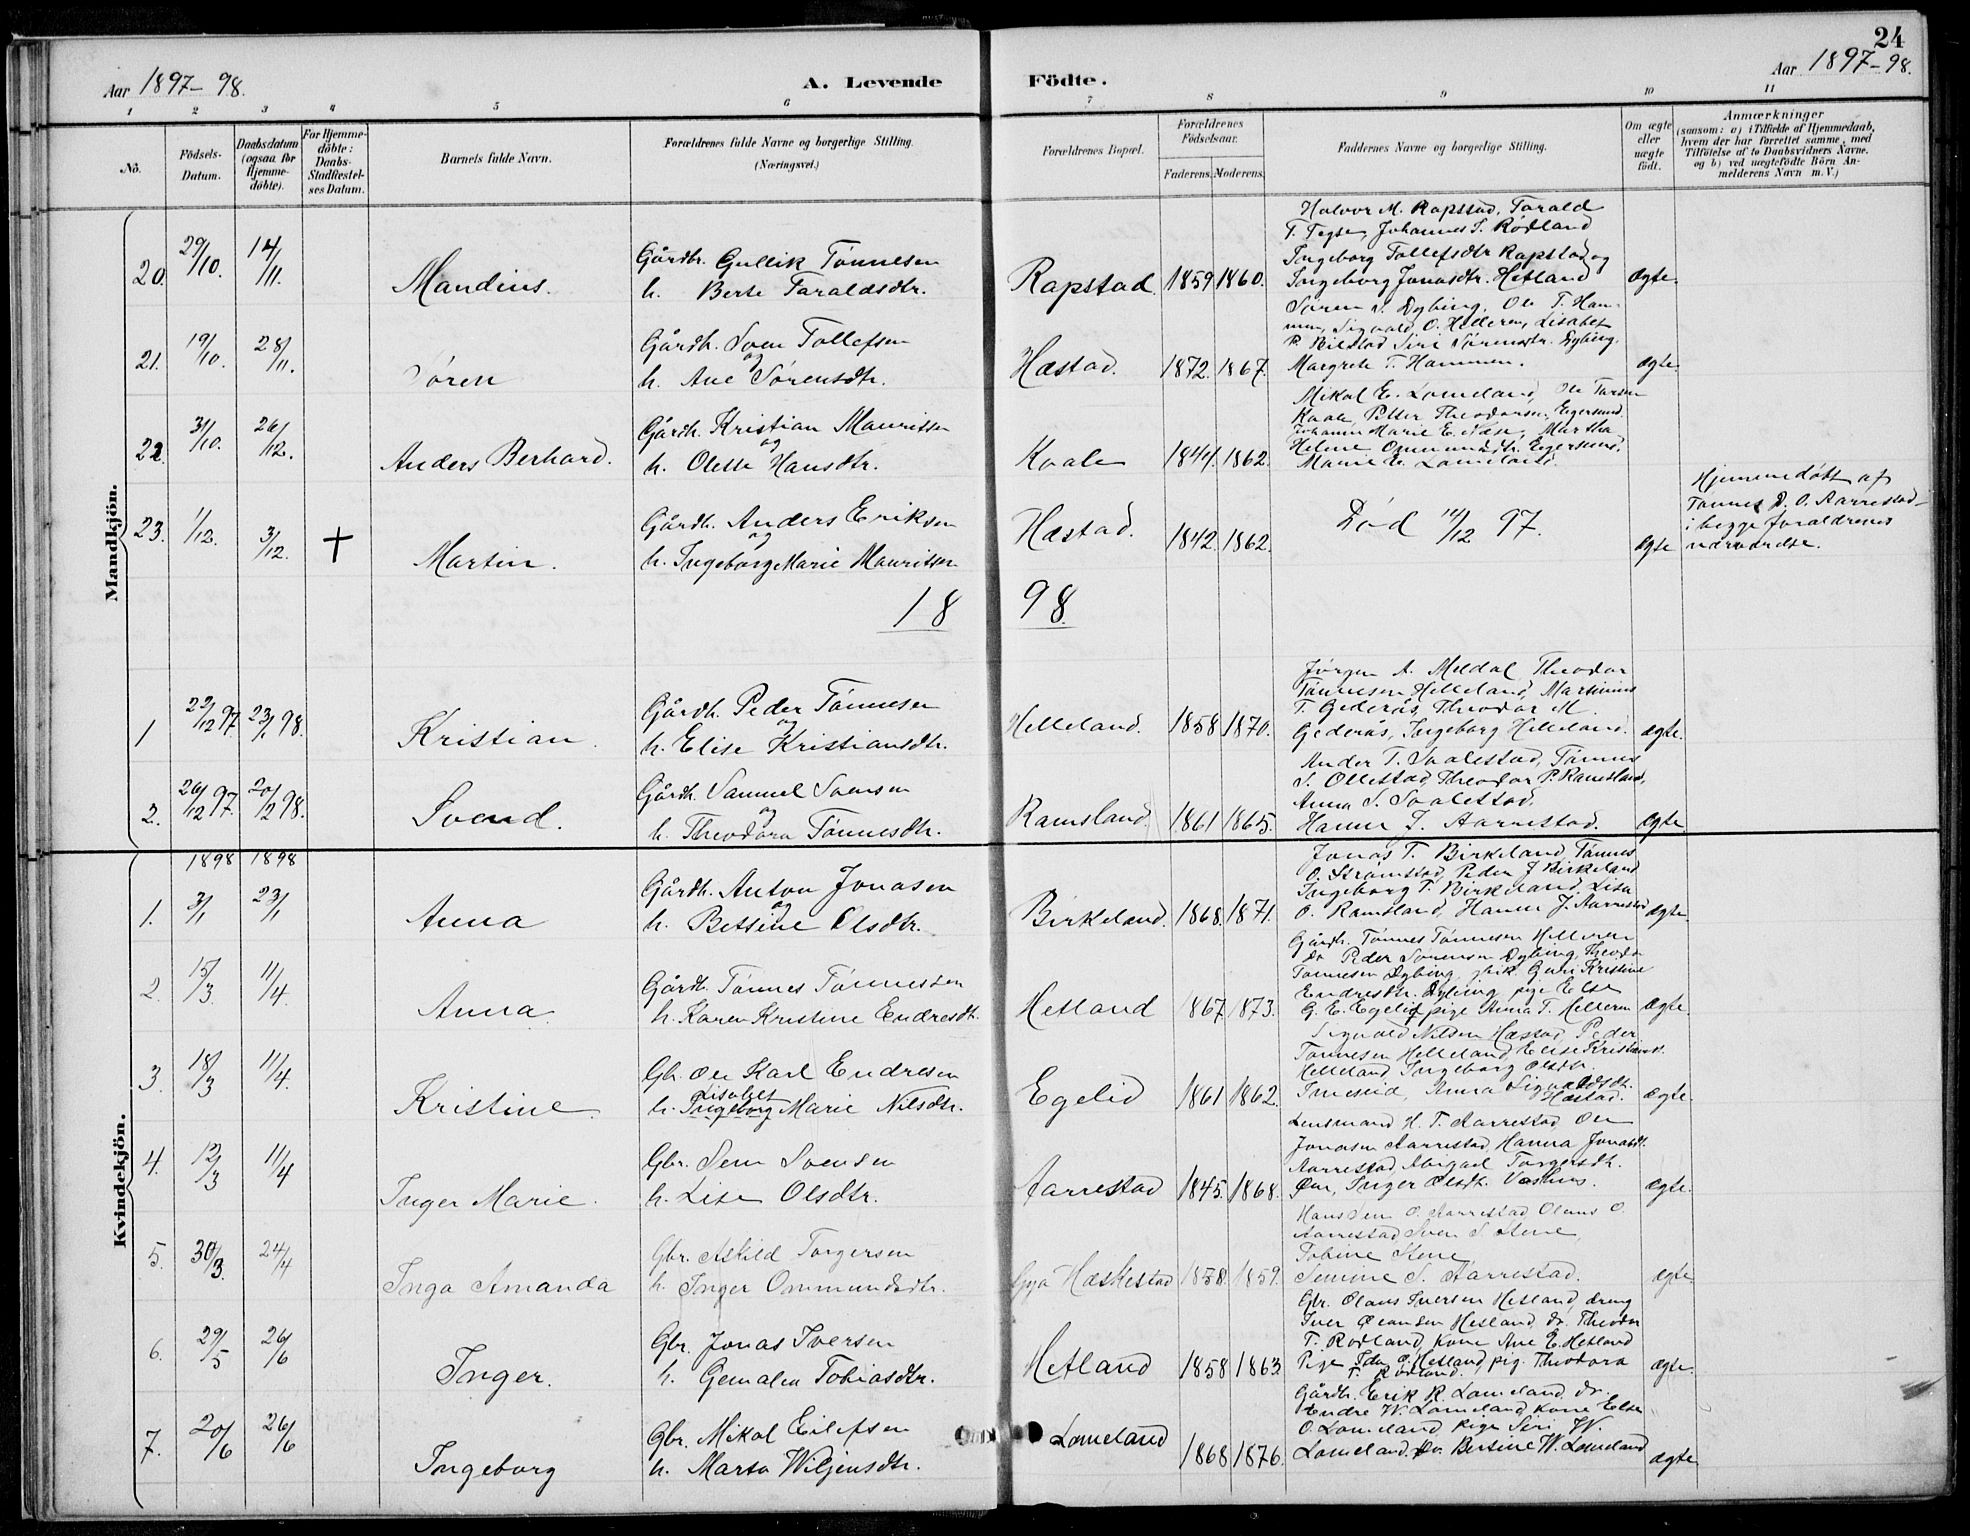 24
Aar 1897-98.
A. Levende Födte.
Aar 1897-98.
1 2 3 4 5 6 7 8 9 10 11
No.
Födsels-Datum.
Daabsdatum (ogsaa for Hjemme-döbte).
For Hjemme-döbte: Daabs-Stadfæstel-ses Datum.
Barnets fulde Navn.
Forældrenes fulde Navne og borgerlige Stilling. (Næringsvei.)
Forældrenes Bopæl.
Forældrenes Födselsaar.
Faderens. Moderens.
Faddernes Navne og borgerlige Stilling.
Om ægte eller uægte födt.
Anmærkninger
(saasom: a) i Tilfælde af Hjemmedaab,
hvem der har forrettet samme, med
Tilföielse af to Daabsvidners Navne.
og b) ved uægtefödte Börn An-
melderens Navn m. V.)
Mandkjön.
20. 29/10. 14/11. Mandius.
Gårdbr. Gullik Tönnesen
h. Berte Taraldsdtr.
Rapstad. 1859 1860.
Halvor M. Rapstad, Tarald
T. Johannes S. Rödland
Ingeborg Tollefsdtr Rapstad og
Ingeborg Jonasdtr. Hetland
ægte.
21. 19/10. 28/11. Sören
Gårdb. Sven Tollefsen
og
h. Ane Sörensdtr.
Hæstad. 1872. 1867.
Sören S. Dybing, Ole T. Ham-
men, Sigvald O. Helleren, Lisabet
Siri Sörensdtr. Dybing.
Margrete T. Hammen.
ægte.
22. 31/10. 26/12. Anders Berhard.
Gårdb. Kristian Mauritsen
og
h. Olette Hansdtr.
Kvale 1844. 1862.
Mikal E. Lomeland, Ole
Petter Theodorsen, Egersund
Johanne Marie E. Martha
Helene Ommundsdtr. Egersund.
Marie E. Lomeland.
23. 1/12. 3/12. + Martin.
Gårdb. Anders Eriksen
og
h. Ingeborg Marie Mauritsen
Hæstad. 1842. 1862.
Död 14/12 97.
ægte
Hjemmedöbt af
Tönnes O. Aarrestad
i begge forældrenes
nærværelse.
18 98.
1 22/12 97. 23/1 98. Kristian.
Gårdb. Peder Tönnesen
og
h. Elise Kristiansdtr.
Helleland. 1858 1870.
Jörgen A. Meldal, Theodor
Tönnesen Helleland, Martinius
T. Gederås, Theodor M.
Gederås, Ingeborg Helleland.
ægte.
2. 26/12 97. 20/2 98. Svend.
Gårdb. Samuel Svensen
og
h. Theodora Tönnesdtr.
Ramsland. 1861 1865.
Ander T. Svalestad, Tönnes
S. Ollestad, Theodor P. Ramsland,
Anna S. Svalestad,
Hanne J. Aarrestad.
ægte
Kvindekjön.
1898 1898
1. 3/1 23/1 Anna
Gårdb. Anton Jonasen
og
h. Betsine Olsdtr.
Birkeland. 1868. 1871.
Jonas T. Birkeland, Tönnes
O. Strömstad, Peder J Birkeland
Ingeborg T. Birkeland. Lisa
O. Ramsland, Hanne J. Aarrestad
ægte.
2. 15/3. 11/4. Anna.
Gårdb. Tönnes Tönnessen
h. Karen Kristine Endresdtr.
Hetland 1867. 1873.
Gårdb. Tönnes Tönnesen Helleren
Do Peder Sörensen Dybing, Theodor
Tönnesen Dybing, Guri Kristine
Endresdtr. Dybing pige Else
G. E. Egelid pige Anna T. Helleren
ægte.
3. 18/3 11/4. Kristine
Gbr. Ole Karl Endresen
Lisabet
h. Ingeborg Marie Nilsdtr.
Egelid 1861 1862.
Sigvald Nilsen Hæstad, Peder
Tönnesen Helleland, Elise Kristiansdt.
Helleland, Ingeborg Olsdtr.
Anna Sigvaldsdtr.
Hæstad.
ægte.
4. 12/3 11/4 Inger Marie.
Gbr. Sem Svensen
h. Lise Olsdtr.
Aarrestad 1845. 1868.
Lensmand H. T. Aarrestad Ole
Jonasen Aarrestad, Hanna Jonasdt.
Aarrestad, Abigael Torgersdtr.
Inger Olsdtr. Væshus.
ægte.
5. 30/3. 24/4 Inga Amanda
Gbr. Askild Torgersen
h. Inger Ommundsdtr.
Gya Hæskestad 1858. 1859.
Hans Sem O. Aarrestad Olaus O.
Aarrestad, Sven S. Stene,
Tobine Stene
Semine S. Aarrestad.
ægte
6. 29/5 26/6 Inger.
Gbr. Jonas Iversen
h. Gemalie Tobiasdtr.
Hetland 1858 1863
Gbr. Olaus Iversen Hetland, dreng
Iver Olausen Hetland, dr. Theodor
T. Rödland, kone Ane E. Hetland
Pige Ida O. Hetland, pig. Theodora
T. Rödland.
ægte.
7. 20/6 26/6 Ingeborg
Gbr. Mikal Eilefsen
h. Marta Wiljensdtr.
Lomeland 1868 1876.
Gårdb. Erik R. Lomeland, dr.
Endre W. Lomeland, kone Else
O. Lomeland, pige Siri W.
Lomeland. Do. Bertine W. Lomeland
ægte